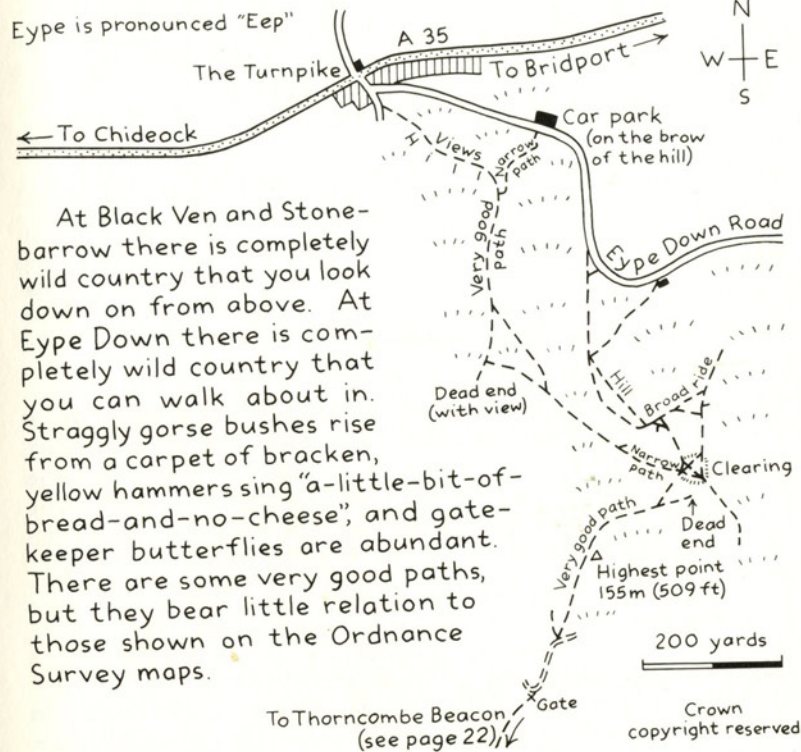 Eype is pronounced "Eep"
N
W E
S
A 35
The Turnpike
To Bridport
To Chideock
Car park
(on the brow
of the hill)
H
Views
Narrow
path
Very good
path
Eype Down Road
At Black Ven and Stone-
barrow there is completely
wild country that you look
down on from above. At
Eype Down there is com-
pletely wild country that
you can walk about in.
Straggly gorse bushes rise
from a carpet of bracken,
yellow hammers sing "a-little-bit-of-
bread-and-no-cheese", and gate-
keeper butterflies are abundant.
There are some very good paths,
but they bear little relation to
those shown on the Ordnance
Survey maps.
Dead end
(with view)
Hill
Broad ride
Narrow
path
Clearing
Very good path
Dead
end
Highest point
155m (509 ft)
200 yards
Gate
To Thorncombe Beacon
(see page 22)
Crown
copyright reserved